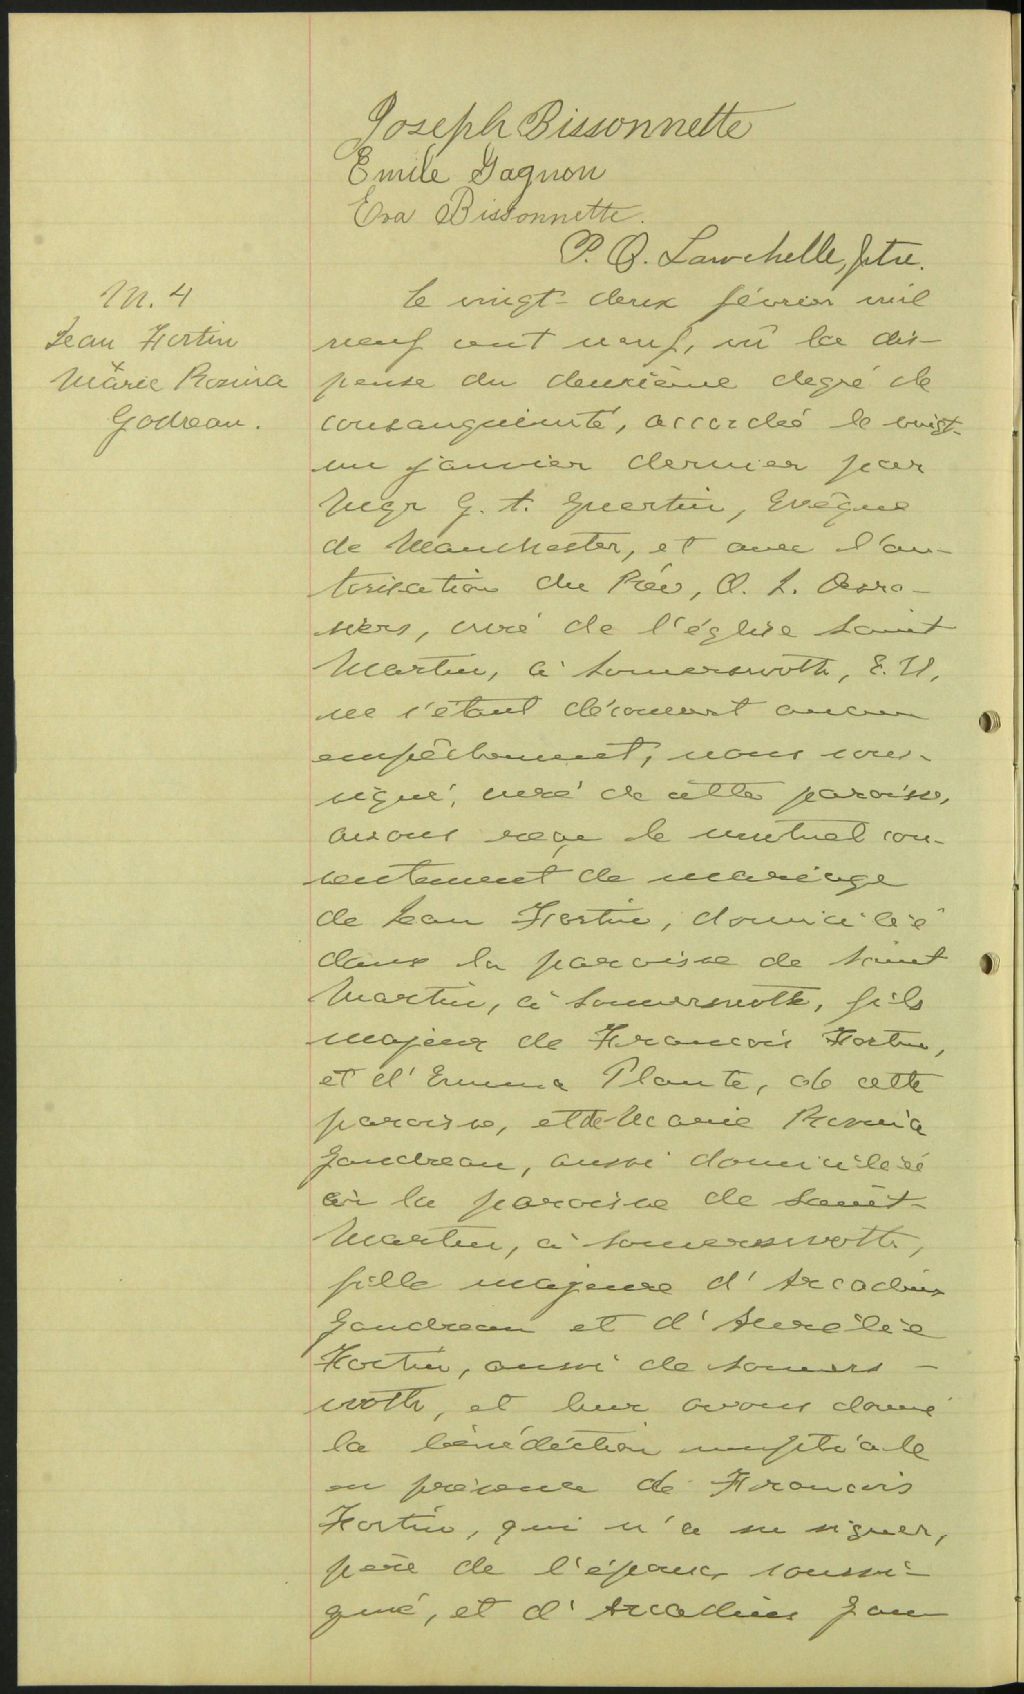 Joseph Bissonnette
Emile Gagnon
Eva Bissonnette.
P. O. Larochelle, ptre.
M. 4
Jean Fortin
&
Marie Rosina
Godreau.
Le vingt-deux février mil
neuf cent neuf, vû la dis-
pense du deuxième degré de
consanguinité, accordée le vingt-
un janvier dernier par
Mgr G. A. Guertin, Evêque
de Manchester, et avec l'au-
torisation du Rév, O. L. Desro-
siers, curé de l'église Saint
Martin, à Somersworth, E. U,
ne s'étant découvert aucun
empêchement, nous sous-
signé, curé de cette paroisse,
avons reçu le mutuel con-
sentement de mariage
de Jean Fortin, domicilié
dans la paroisse de Saint
Martin, à Somersworth, fils
majeur de François Fortin,
et d'Emma Plante, de cette
paroisse, et de Marie Rosina
Gaudreau, aussi domiciliée
en la paroisse de Saint-
Martin, à Somersworth,
fille majeure d'Arcadius
Gaudreau et d'Aurélie
Fortin, aussi de Somers-
worth, et leur avons donné
la bénédiction nuptiale
en présence de François
Fortin, qui n'a su signer,
père de l'époux soussi-
gné, et d'Arcadius Gau